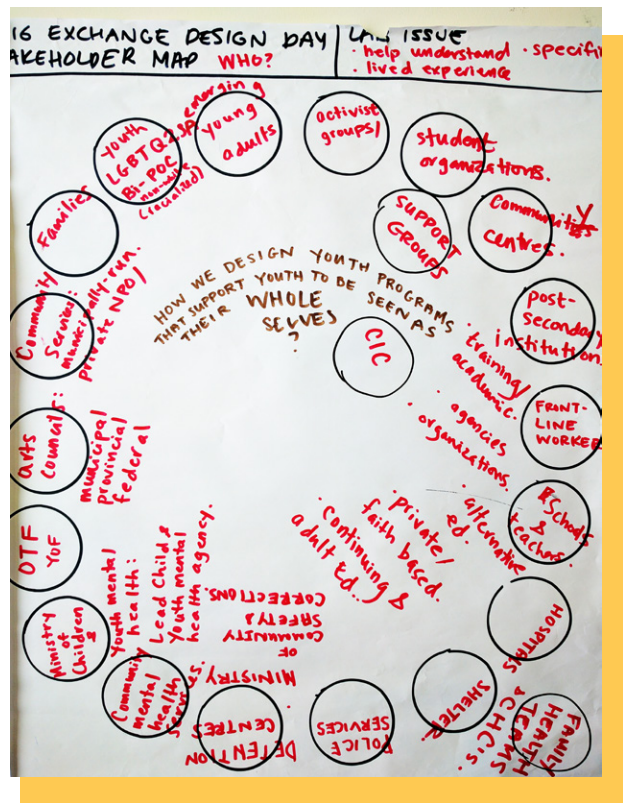 16 EXCHANGE DESIGN DAY
AKEHOLDER MAP WHO?
LAB ISSUE
· help understand · specifi
· lived experience
HOW WE DESIGN YOUTH PROGRAMS
THAT SUPPORT YOUTH TO BE SEEN AS
THEIR WHOLE
SELVES
?
Families
youth
LGBTQ2S
Bi-POC
non-white
(racialized)
emerging
young
adults
activist
groups/
student
organizations.
SUPPORT
GROUPS
Communities Y
centres.
post-
secondary
institution
CIC
· training/
academic.
· agencies
organizations.
FRONT-
LINE
WORKEE
Schools
&
teachers.
· alternative
ed.
· private/
faith based.
· continuing &
adult Ed..
HOSPITALS
FAMILY
HEALTH
TEAMS
& CHC's.
SHELTER.
POLICE
SERVICES
DETENTION
CENTRES
· MINISTRY
OF
COMMUNITY
SAFETY &
CORRECTIONS.
Community
mental
health
services.
Youth mental
health:
Lead Child &
Youth mental
health agency.
Ministry
of
Children
&
OTF
YOF
arts
councils:
municipal
provincial
federal
Community
Services:
municipally-run.
private NPO/